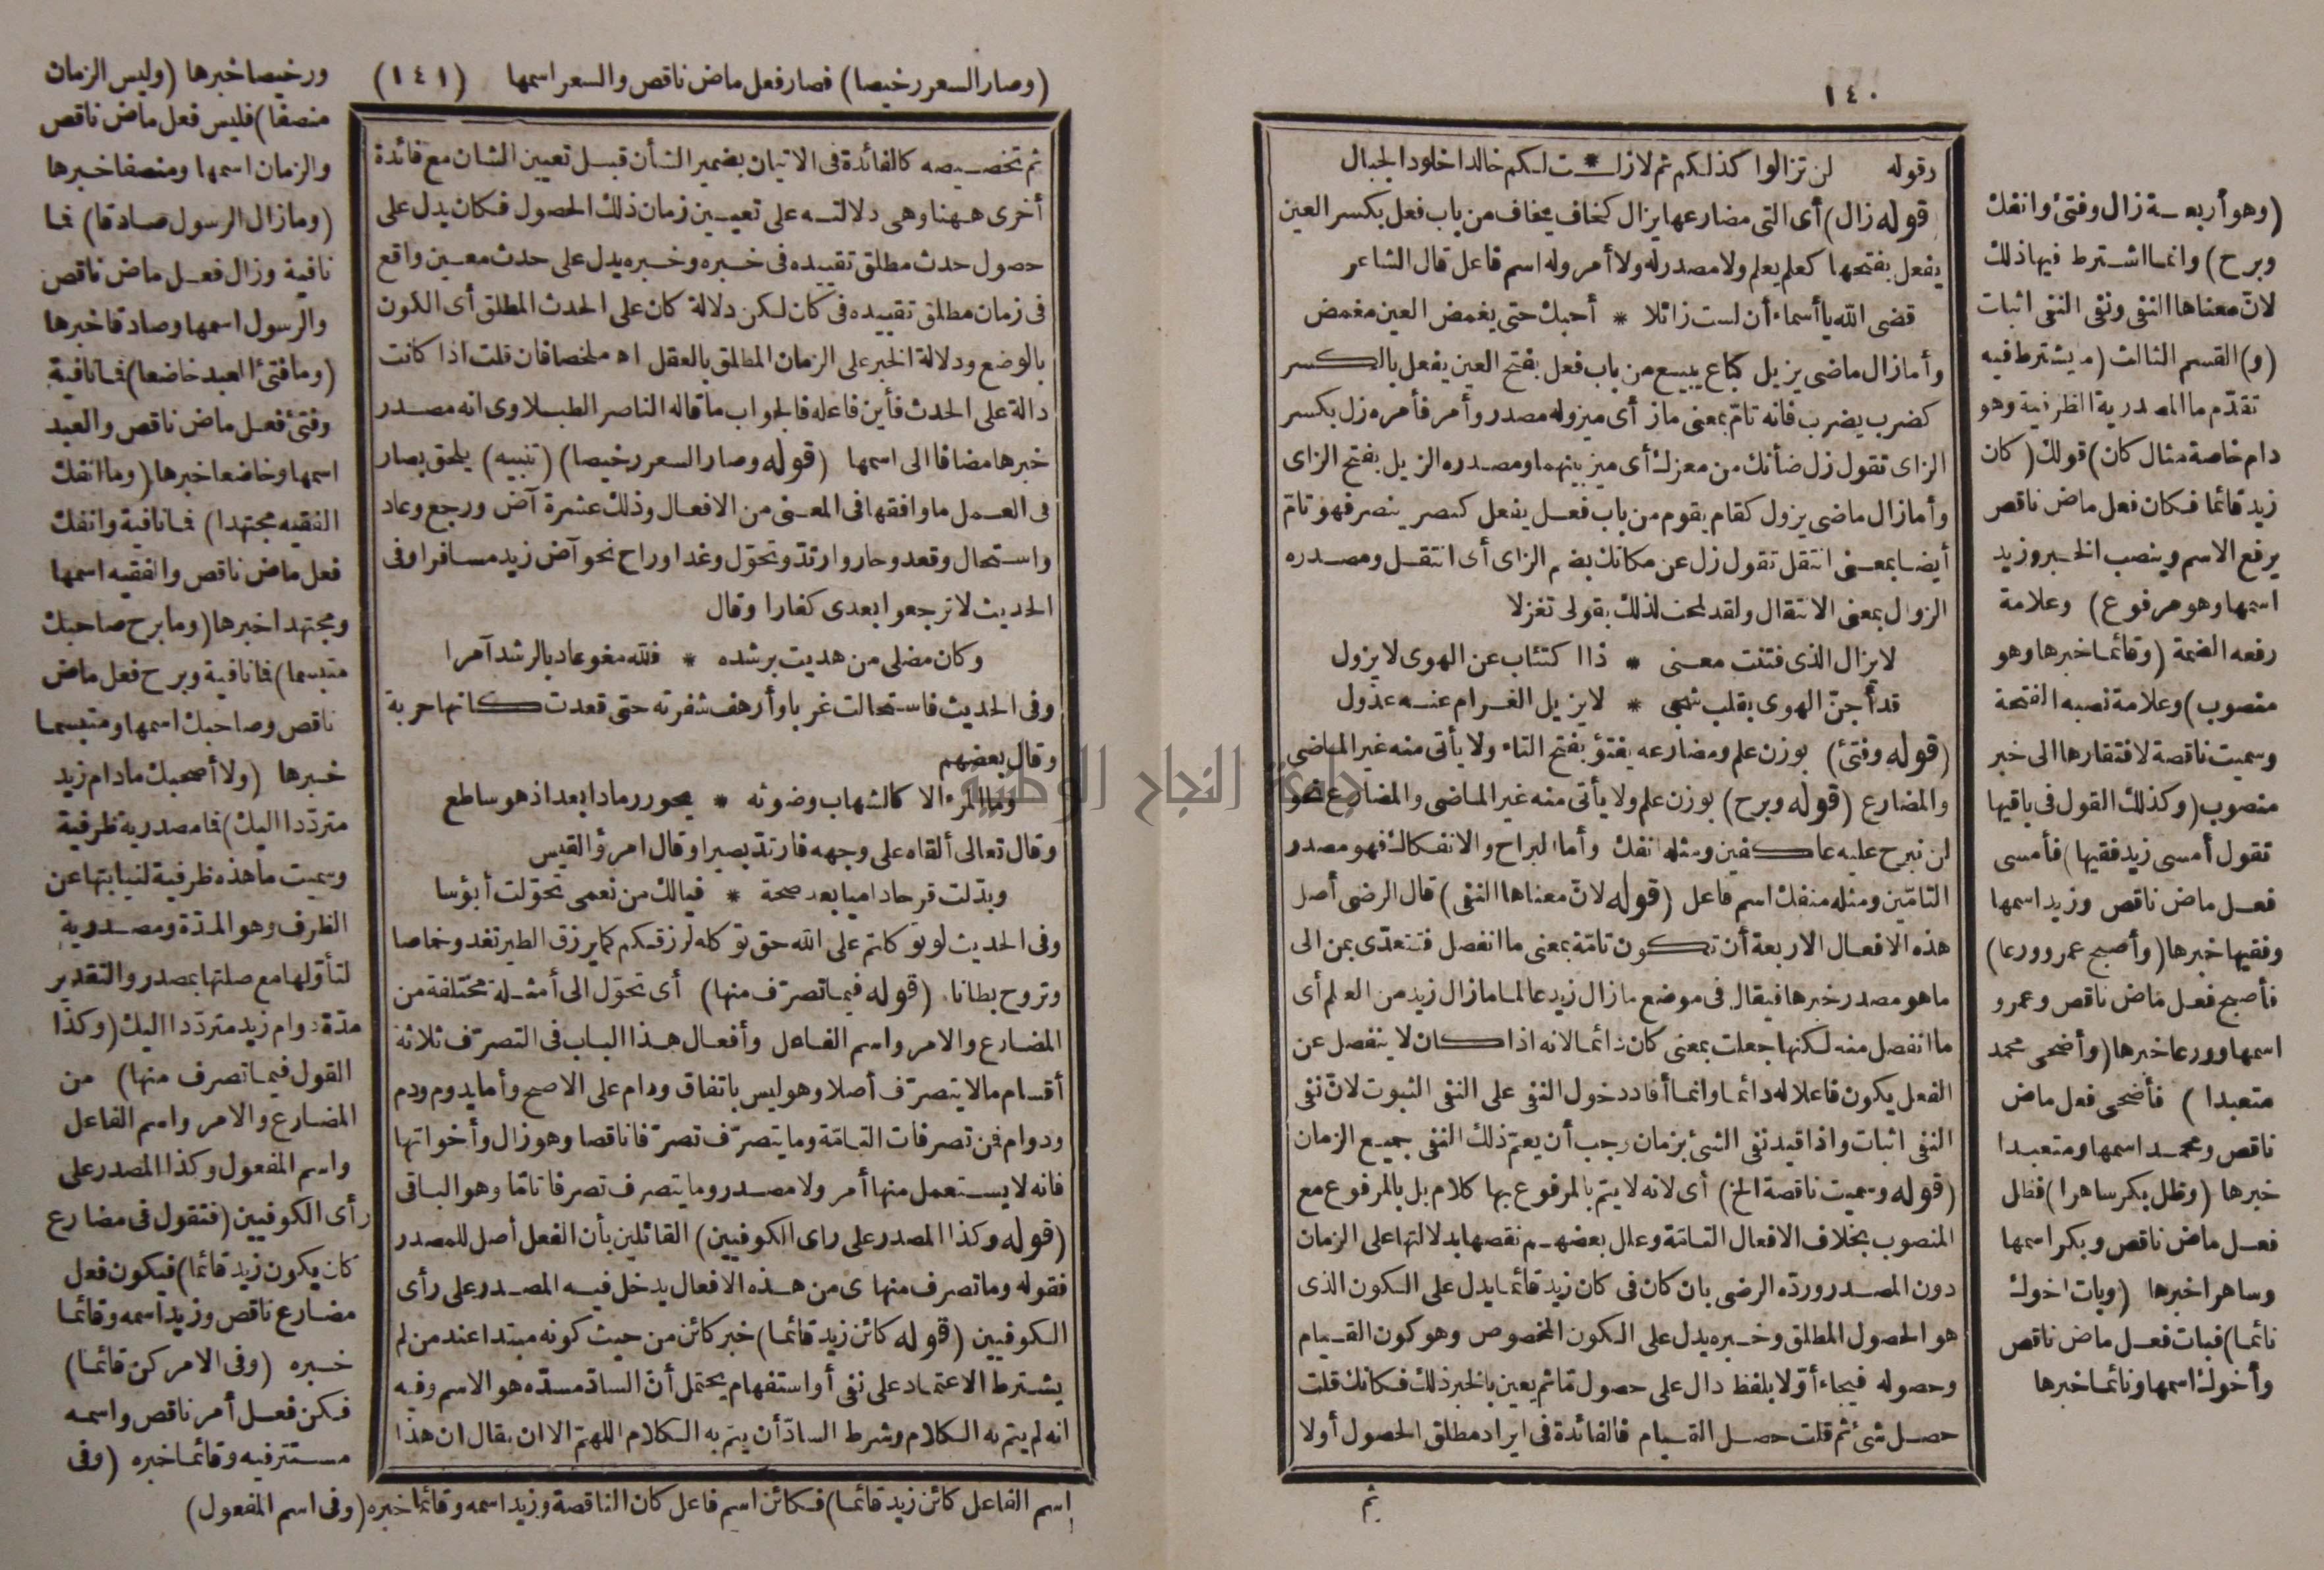 ١٤٠
وقوله لن تزالوا كذلكم ثم لازلـــت لكم خالدا خلود الجبال
قوله زال) أى التى مضارعها يزال كخاف يخاف من باب فعل بكسر العين
يفعل بفتحها كعلم يعلم ولا مصدر له ولا أمر وله اسم فاعل قال الشاعر
قضى الله يا أسماء أن لست زائلا * أحبك حتى يغمض العين مغمض
وأما زال ماضى يزيل كباع يبيع من باب فعل بفتح العين يفعل بالكسر
كضرب يضرب فانه تام بمعنى ماز أى ميز وله مصدر وأمر فأمره زل بكسر
الزاى تقول زل ضأنك من معزك أى ميز بينهما ومصدره الزيل بفتح الزاى
وأما زال ماضى يزول كقام يقوم من باب فعل يفعل كنصر ينصر فهو تامّ
أيضا بمعنى انتقل تقول زل عن مكانك بضم الزاى أى انتقل ومصدره
الزوال بمعنى الانتقال ولقد لمحت لذلك بقولى تغزلا
لا يزال الذى فتنت معنى * ذا اكتئاب عن الهوى لا يزول
قد أجنّ الهوى بقلب شجى * لا يزيل الغرام عنه عذول
(قوله وفتئ) بوزن علم ومضارعه يفتؤ بفتح التاء ولا يأتى منه غير الماضى
والمضارع (قوله وبرح) بوزن علم ولا يأتى منه غير الماضى والمضارع نحو
لن نبرح عليه عاكفين ومثله انفك وأما البراح والانفكاك فهو مصدر
التامّين ومثله منفك اسم فاعل (قوله لانّ معناها النفى) قال الرضى أصل
هذه الافعال الاربعة أن تكون تامّة بمعنى ما انفصل فتتعدّى بمن الى
ما هو مصدر خبرها فيقال فى موضع ما زال زيد عالما ما زال زيد من العلم أى
ما انفصل منه لكنها جعلت بمعنى كان دائما لانه اذا كان لا ينفصل عن
الفعل يكون فاعلا له دائما وانما أفاد دخول النفى على النفى الثبوت لانّ نفى
النفى اثبات واذا قيد نفى الشئ بزمان وجب أن يعمّ ذلك النفى جميع الزمان
(قوله وسميت ناقصة الخ) أى لانه لا يتم بالمرفوع بها كلام بل بالمرفوع مع
المنصوب بخلاف الافعال التامّة وعلل بعضهم نقصها بدلالتها على الزمان
دون المصدر وردّه الرضى بان كان فى كان زيد قائما يدل على الكون الذى
هو الحصول المطلق وخبره يدل على الكون المخصوص وهو كون القيام
وحصوله فيجاء أوّلا بلفظ دال على حصول مّا ثم يعين بالخبر ذلك فكانك قلت
حصل شئ ثم قلت حصل القيام فالفائدة فى ايراد مطلق الحصول أولا
ثم
(وهو أربعة زال وفتئ وانفك
وبرح) وانما اشترط فيها ذلك
لانّ معناها النفى ونفى النفى اثبات
(و) القسم الثالث (ما يشترط فيه
تقدّم ما المصدرية الظرفية وهو
دام خاصة مثال كان) قولك (كان
زيد قائما فكان فعل ماض ناقص
يرفع الاسم وينصب الخبر وزيد
اسمها وهو مرفوع) وعلامة
رفعه الضمة (وقائما خبرها وهو
منصوب) وعلامة نصبه الفتحة
وسميت ناقصة لافتقارها الى خبر
منصوب (وكذلك القول فى باقيها
تقول أمسى زيد فقيها) فأمسى
فعل ماض ناقص وزيد اسمها
وفقيها خبرها (وأصبح عمرو ورعا)
فأصبح فعل ماض ناقص وعمرو
اسمها وورعا خبرها (وأضحى محمد
متعبدا) فأضحى فعل ماض
ناقص ومحمد اسمها ومتعبدا
خبرها (وظل بكر ساهرا) فظل
فعل ماض ناقص وبكر اسمها
وساهرا خبرها (وبات اخوك
نائما) فبات فعل ماض ناقص
وأخوك اسمها ونائما خبرها
(وصار السعر رخيصا) فصار فعل ماض ناقص والسعر اسمها (١٤١)
ثم تخصيصه كالفائدة فى الاتيان بضمير الشأن قبل تعيين الشان مع فائدة
أخرى ههنا وهى دلالته على تعيين زمان ذلك الحصول فكان يدل على
حصول حدث مطلق تقييده فى خبره وخبره يدل على حدث معين واقع
فى زمان مطلق تقييده فى كان لكن دلالة كان على الحدث المطلق أى الكون
بالوضع ودلالة الخبر على الزمان المطلق بالعقل اه ملخصا فان قلت اذا كانت
دالة على الحدث فأين فاعله فالجواب ما قاله الناصر الطبلاوى انه مصدر
خبرها مضافا الى اسمها (قوله وصار السعر رخيصا) (تنبيه) يلحق بصار
فى العمل ما وافقها فى المعنى من الافعال وذلك عشرة آض ورجع وعاد
واستحال وقعد وحار وارتدّ وتحوّل وغدا وراح نحو آض زيد مسافرا وفى
الحديث لا ترجعوا بعدى كفارا وقال
وكان مضلى من هديت برشده * فلله مغو عاد بالرشد آمرا
وفى الحديث فاستحالت غربا وأرهف شفرته حتى قعدت كانها حربة
وقال بعضهم
وما المرء الا كالشهاب وضوئه * يحور رمادا بعد اذ هو ساطع
وقال تعالى ألقاه على وجهه فارتدّ بصيرا وقال امرؤ القيس
وبدّلت قرحا داميا بعد صحة * فيالك من نعمى تحوّلت أبؤسا
وفى الحديث لو توكلتم على الله حق توكله لرزقكم كما يرزق الطير تغدو خماصا
وتروح بطانا (قوله فيما تصرّف منها) أى تحوّل الى أمثلة مختلفة من
المضارع والامر واسم الفاعل وأفعال هذا الباب فى التصرّف ثلاثة
أقسام ما لا يتصرّف أصلا وهو ليس باتفاق ودام على الاصح وأما يدوم ودم
ودوام فمن تصرفات التامّة وما يتصرّف تصرّفا ناقصا وهو زال وأخواتها
فانه لا يستعمل منها أمر ولا مصدر وما يتصرف تصرفا تامّا وهو الباقى
(قوله وكذا المصدر على راى الكوفيين) القائلين بأن الفعل أصل للمصدر
فقوله وما تصرف منها ى من هذه الافعال يدخل فيه المصدر على رأى
الكوفيين (قوله كائن زيد قائما) خبر كائن من حيث كونه مبتدا عند من لم
يشترط الاعتماد على نفى أو استفهام يحتمل أنّ السادّ مسدّه هو الاسم وفيه
انه لم يتم به الكلام وشرط السادّ أن يتم به الكلام اللهمّ الا ان يقال ان هذا
ورخيصا خبرها (وليس الزمان
منصفا) فليس فعل ماض ناقص
والزمان اسمها ومنصفا خبرها
(وما زال الرسول صادقا) فما
نافية وزال فعل ماض ناقص
والرسول اسمها وصادقا خبرها
(وما فتئ العبد خاضعا) فما نافية
وفتئ فعل ماض ناقص والعبد
اسمها وخاضعا خبرها (وما انفك
الفقيه مجتهدا) فما نافية وانفك
فعل ماض ناقص والفقيه اسمها
ومجتهدا خبرها (وما برح صاحبك
متبسما) فما نافية وبرح فعل ماض
ناقص وصاحبك اسمها ومتبسما
خبرها (ولا أصحبك ما دام زيد
متردّدا اليك) فما مصدرية ظرفية
وسميت ما هذه ظرفية لنيابتها عن
الظرف وهو المدّة ومصدرية
لتأوّلها مع صلتها بمصدر والتقدير
مدّة دوام زيد متردّدا اليك (وكذا
القول فيما تصرف منها) من
المضارع والامر واسم الفاعل
واسم المفعول وكذا المصدر على
رأى الكوفيين (فتقول فى مضارع
كان يكون زيد قائما) فيكون فعل
مضارع ناقص وزيد اسمه وقائما
خبره (وفى الامر كن قائما)
فكن فعل أمر ناقص واسمه
مستتر فيه وقائما خبره (وفى
اسم الفاعل كائن زيد قائما) فكائن اسم فاعل كان الناقصة وزيد اسمه وقائما خبره (وفى اسم المفعول)
جامعة النجاح الوطنية